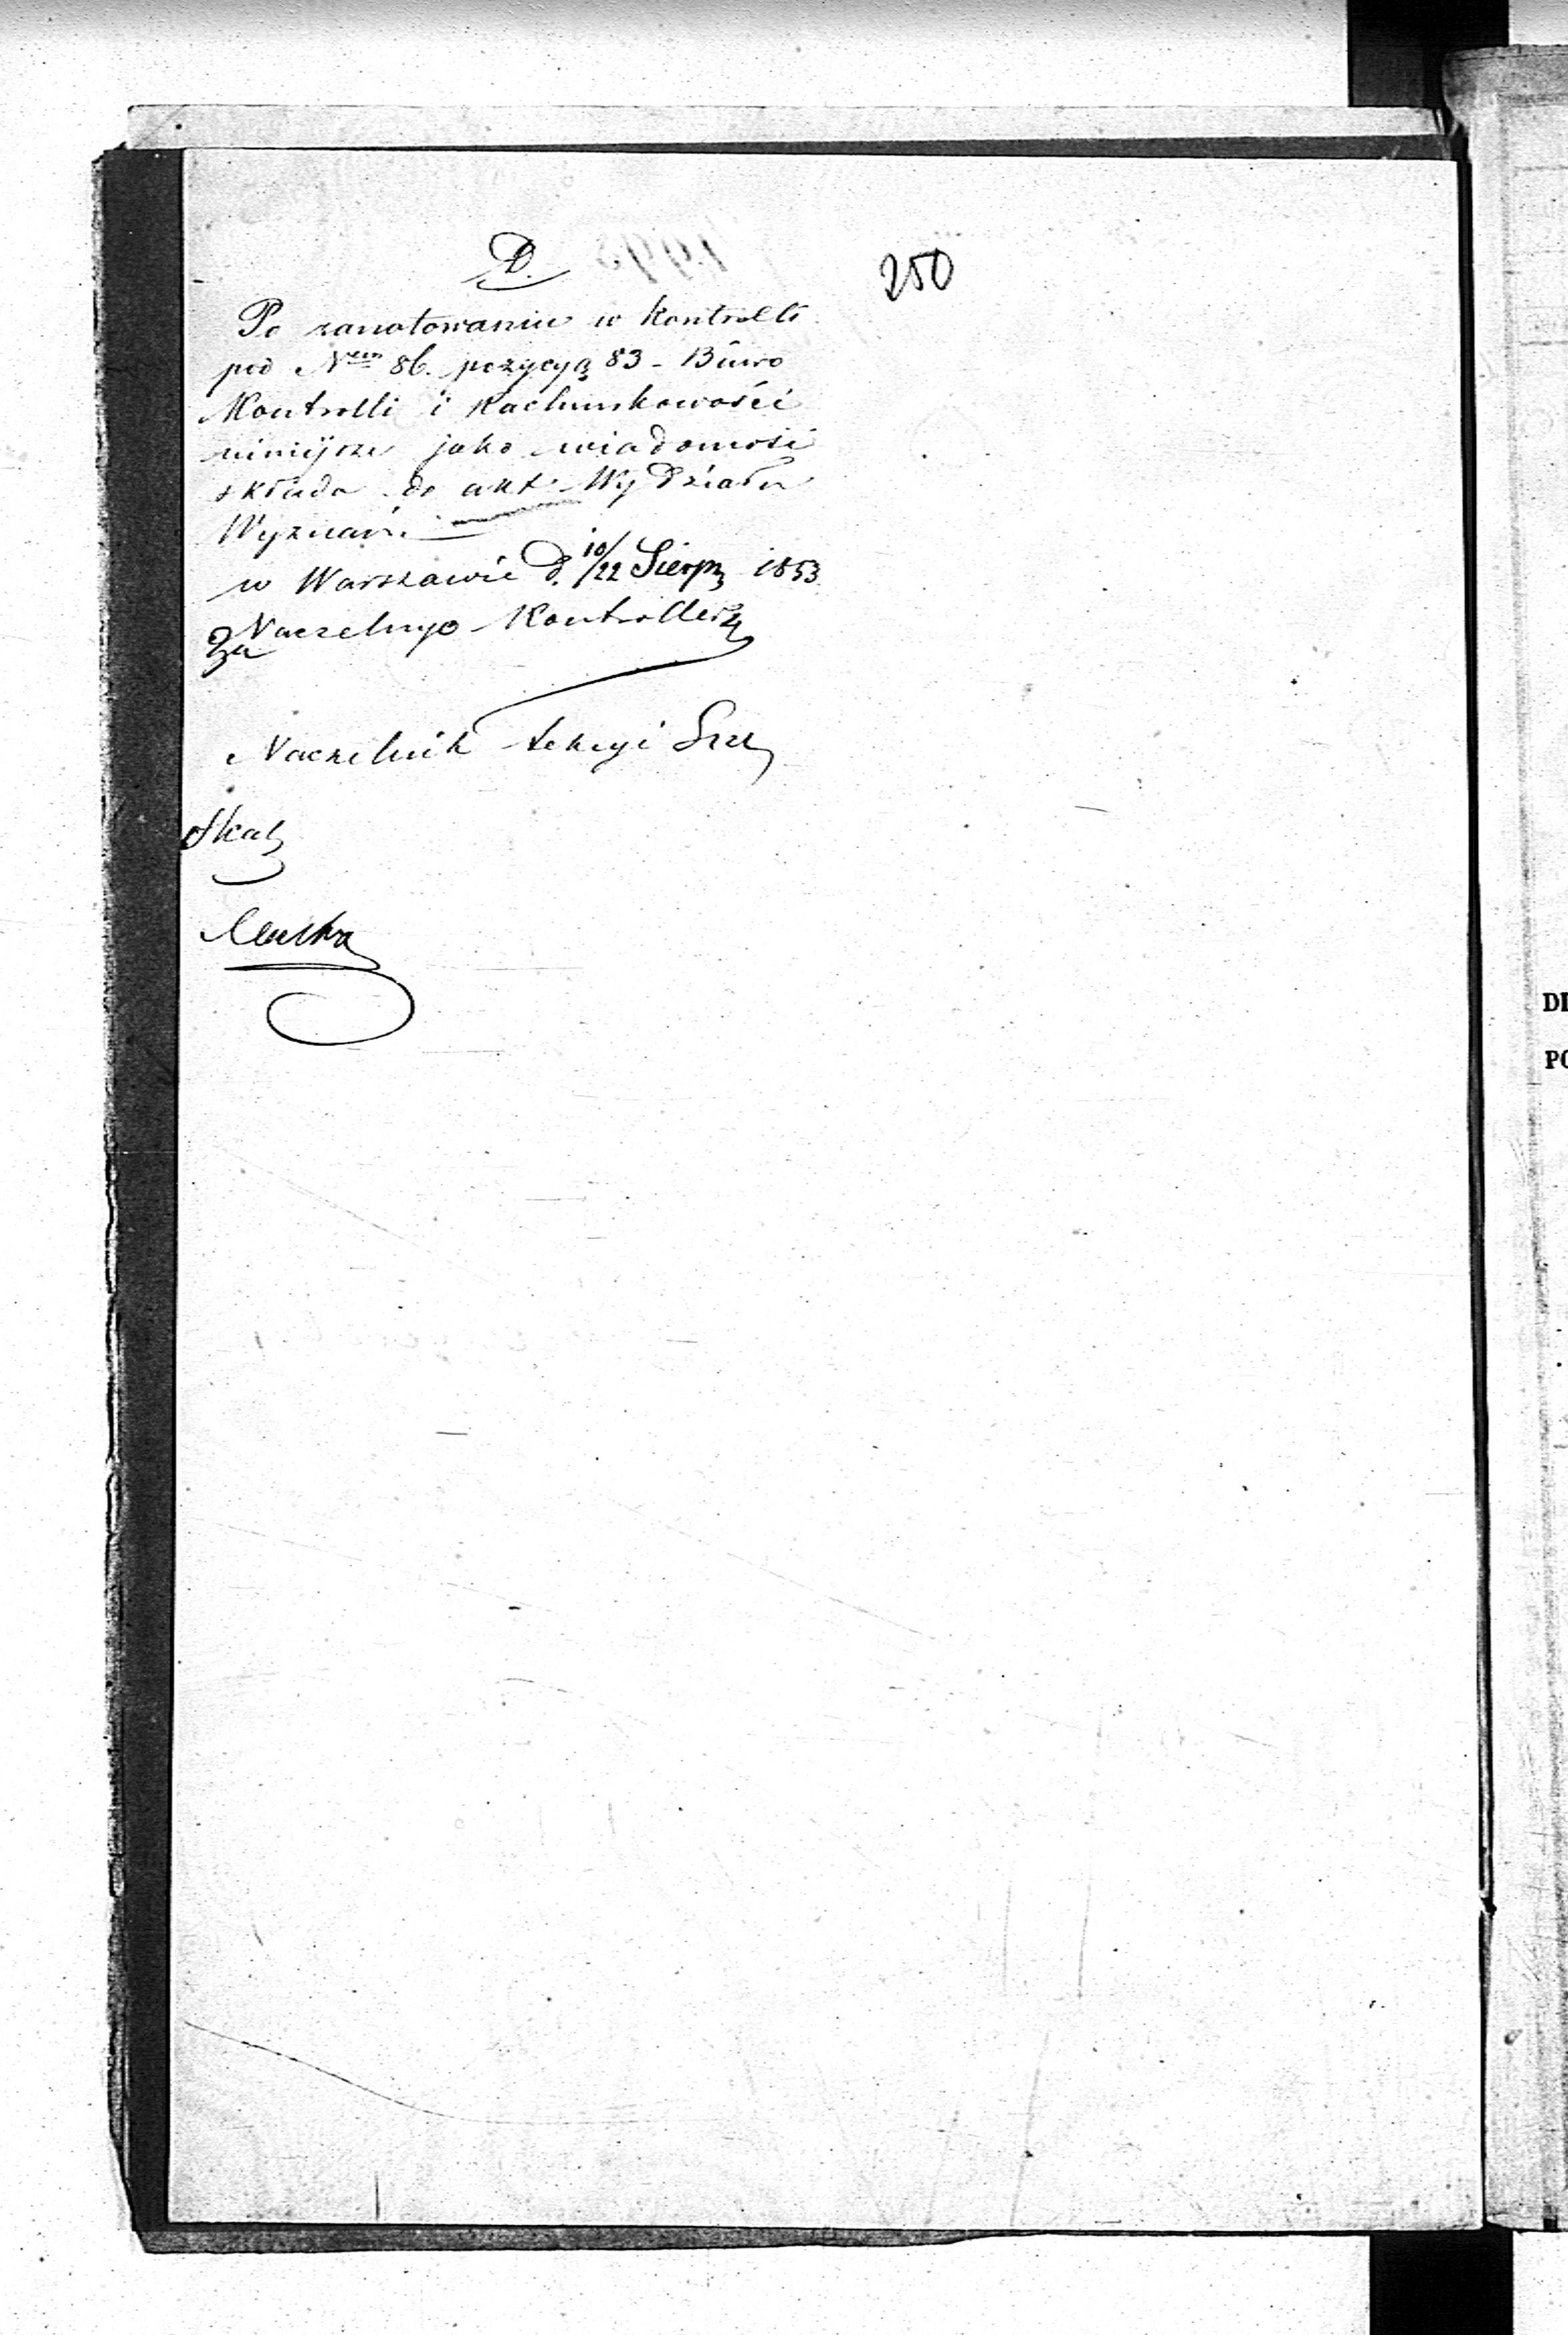 D.
250
Po zanotowaniu w Kontrolli
pod Nrem 86. pozycyą 83 - Biuro
Kontrolli i Rachunkowości
niniejsze jako wiadomość
składa do akt Wydziału
Wyznań.
w Warszawie d. 10/22 Sierp. 1853
Za Naczelnego Kontrollera
Naczelnik Sekcyi
DI
PO